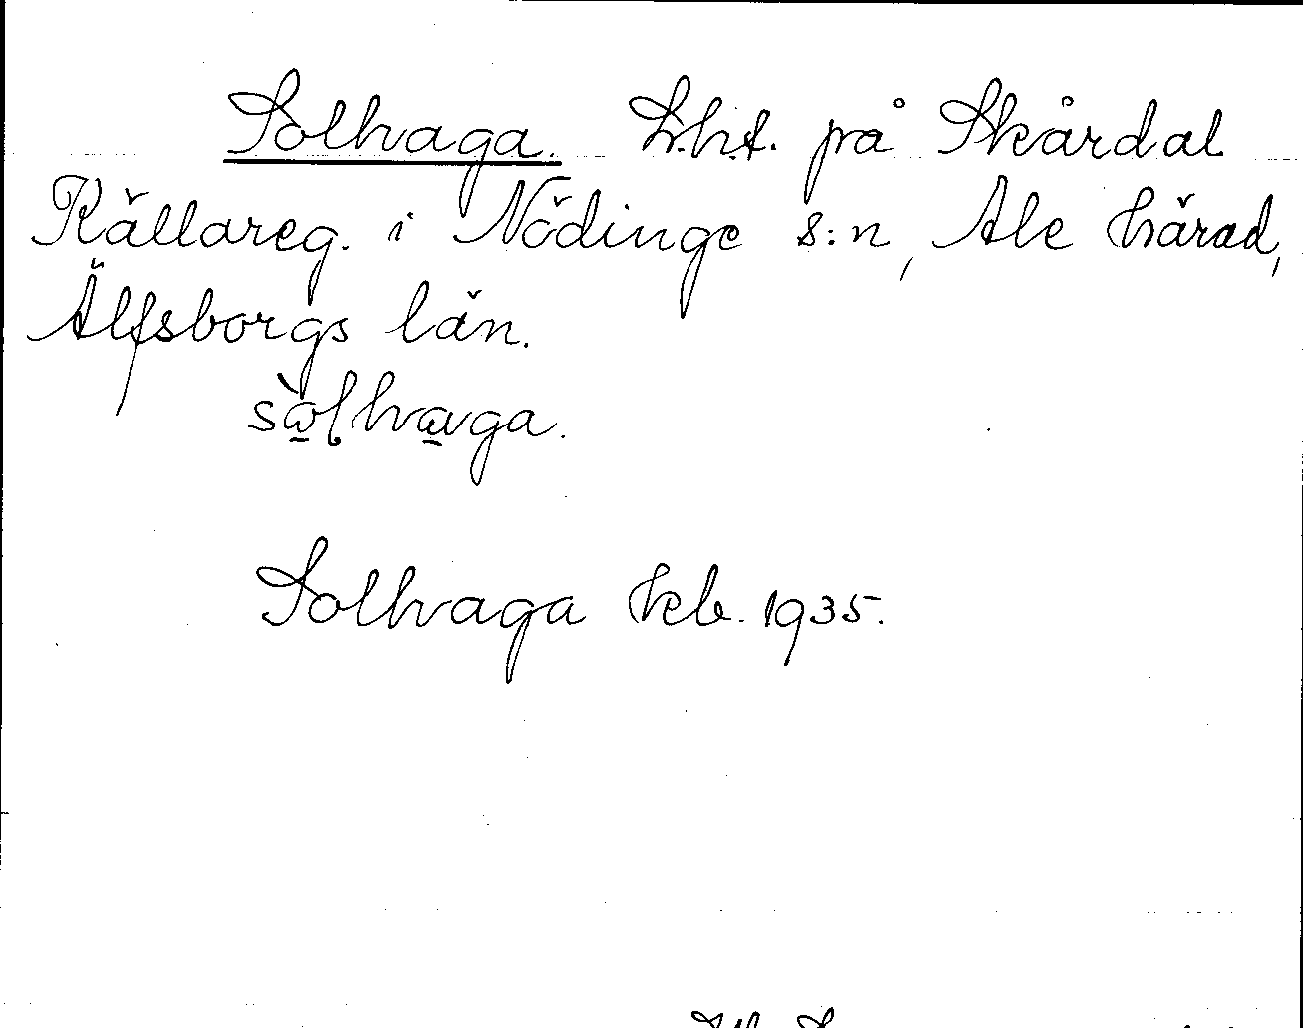 Solhaga. L.h.t. på Skårdal
Källareg. i Nödinge s:n, Ale härad,
Älfsborgs län.
sòlhaga.
Solhaga kb. 1935.